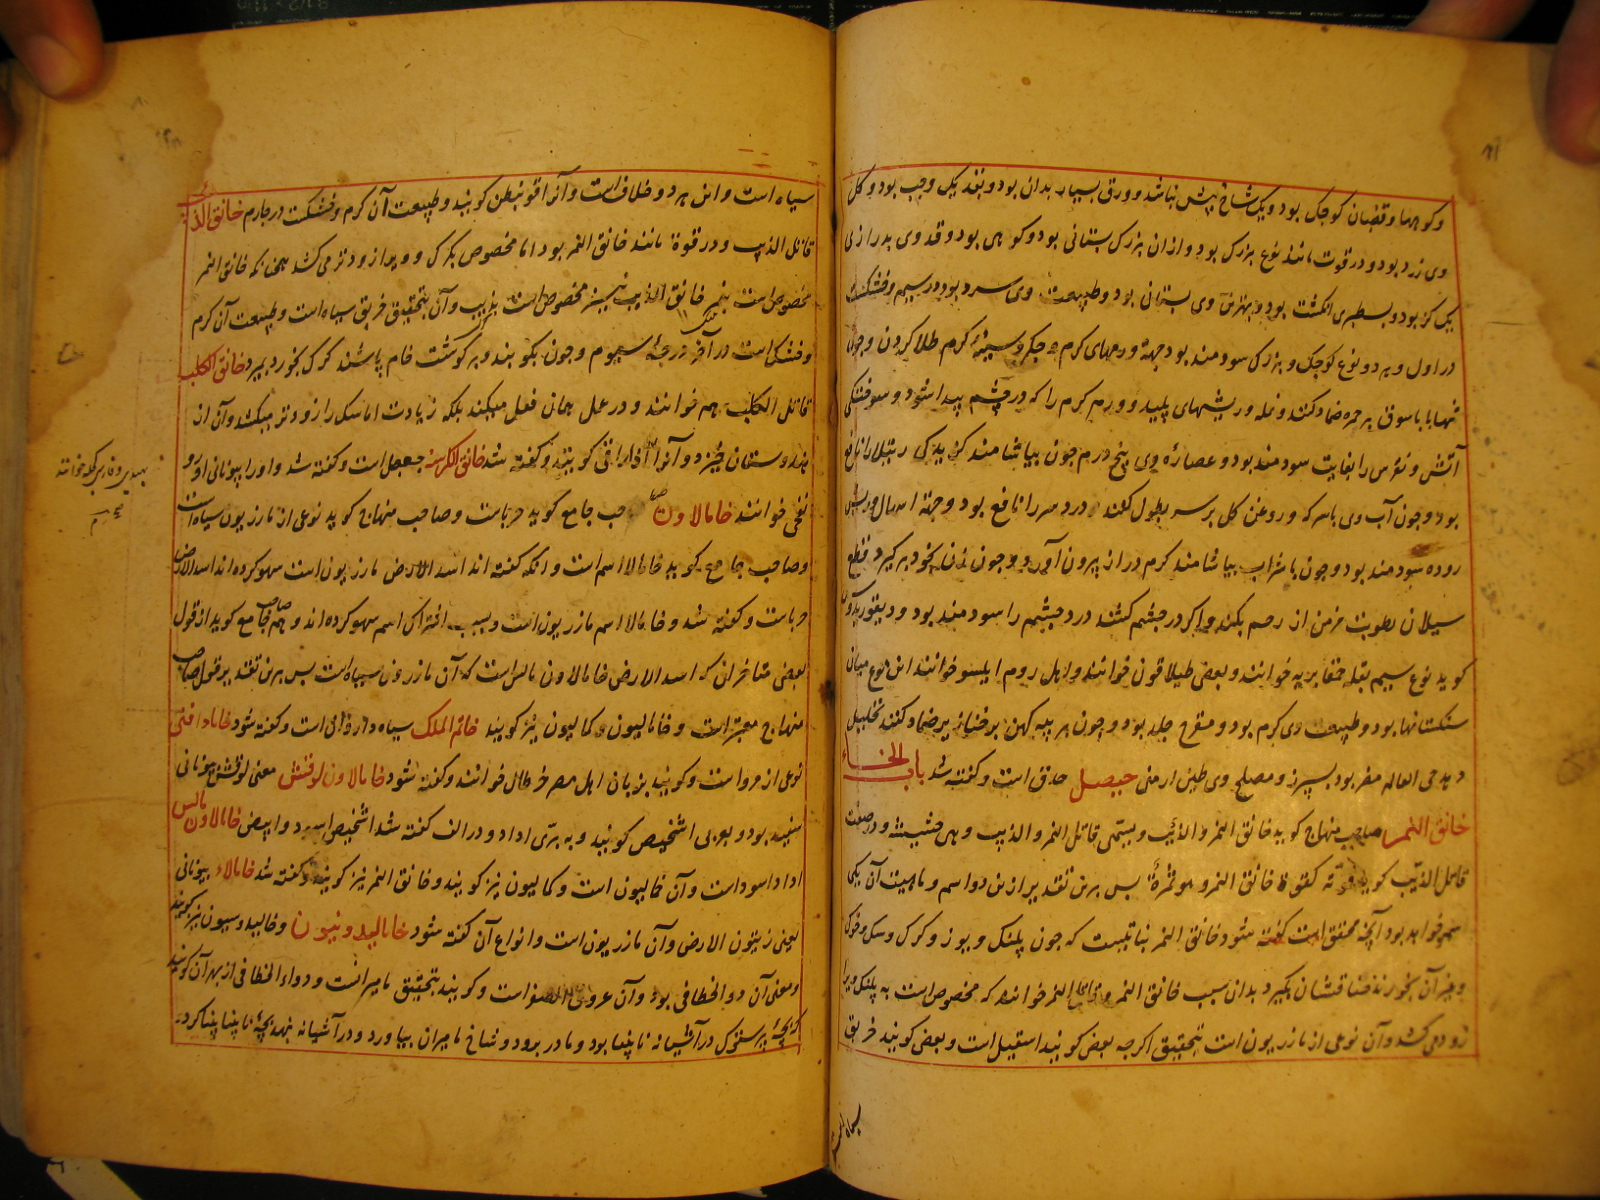 وکوهها و قضبان کوچک بود و یک شاخ بیش نباشد و ورق بسیار بدان بود و بقد یک وجب بود و کل
وی زرد بود و در قوت مانند نوع بزرک بود و از ان بزرک بستانی بود و کوهی بود و قد وی بدرازی
یک کز بود و بسطبری انکشت بود و بهترین وی بستانی بود و طبیعت وی سرد بود در سیم و خشکست
در اول و هر دو نوع کوچک و بزرک سودمند بود جهة ورمهای کرم و جکر و سینۀ کرم طلا کردن و چون
تنها با با سوق بر حمره ضماد کنند و نمله و ریشهای پلید و ورم کرم را که در چشم پیدا شود و سوختکی
آتش و نقرس را بغایت سودمند بود و عصارۀ وی پنج درم چون بیاشامند کزیدکی رتیلا را نافع
بود و چون آب وی با سرکه و روغن کل بر سر بطول کنند درد سر را نافع بود و جهة اسهال و ریش
روده سودمند بود و چون با شراب بیاشامند کرم دراز بیرون آورد و چون زن بخود برکیرد قطع
سیلان رطوبت مزمن از رحم بکند و اکر در چشم کشند درد چشم را سودمند بود و دیقوریدوس
کوید نوع سیم بقله حمقا بریه خوانند و بعضی طیلاقون خوانند و اهل روم ایلسو خوانند این نوع میان
سنکستانها بود و طبیعت وی کرم بود و مقرح جلد بود و چون بر پیه کهن بر خنازیر ضماد کنند تحلیل
دهد حی العالم مضر بود بسپرز و مصلح وی طین ارمنی حیصل حدق است و کفته شد باب الخاء
خانق النمر صاحب منهاج کوید خانق النمر و الذئب و یسمی قاتل النمر و الذیب و هی حشیشه و در صفت
قاتل الذئب کوید قوته کقوة خانق النمر و هو ثمرة پس برین تقدیر این دو اسم و ماهیت آن یکی
خواهد بود آنچه محقق است کفته شود خانق النمر نباتیست که چون پلنک و یوز و کرک و سک و خوک
و غیر آن بخورند خناقشان بکیرد بدان سبب خانق النمر و قاتل النمر خوانند که مخصوص است به پلنک و ویرا
زود می کشد و آن نوعی از مازریون است بتحقیق اکرچه بعضی کویند اسقیل است و بعضی کویند خربق
سیاه است
سیاه است و این هر دو خلاف است و آنرا اقونیطن کویند و طبیعت آن کرم و خشکست در چارم خانق الذئب
قاتل الذیب و در قوة مانند خانق النمر بود اما مخصوص بکرک و ویرا زودتر می کشد همچنانکه خانق النمر
مخصوص است بنمر خانق الذیب نیز مخصوص است بذیب و آن بتحقیق خربق سیاه است و طبیعت آن کرم
و خشک است در آخر درجۀ سیوم و چون بکوبند و بر کوشت خام پاشند کرک بخورد بمیرد خانق الکلب
قاتل الکلب هم خوانند و در عمل همان فعل میکند بلکه زیادت اما سک را زودتر میکشد و آن از
هندوستان خیزد و آنرا آذاراقی کویند و کفته شد خانق الکرسنه جعجل است و کفته شد و اورا بیونانی اورو
نقحی خوانند خامالاون صاحب جامع کوید حرباست و صاحب منهاج کوید نوعی از مازریون سیاه است
و صاحب جامع کوید خامالا اسم است و انکه کفته اند اسد الارض مازریون است سهو کرده اند اسد الارض
حرباست و کفته شد و خامالا اسم مازریون است و بسبب اشتراک اسم سهو کرده اند و هم صاحب جامع کوید از قول
بعضی متاخران که اسد الارض خامالاون مالس است که آن مازریون سیاه است پس برین تقدیر قول صاحب
منهاج معتبر است و خامالیون و کمالیون نیز کویند خاتم الملک سیاه داروانی است و کفته شود خامادافنی
نوعی از مرو است و کویند بزبان اهل مصر خوانند و کفته شود خامالاون لوقنس معنی لوقنس بیونانی
سفید بود و بعربی اشخیص کویند و به بربری اداد و در الف کفته شد اشخیص اسود و ابیض خامالاون مالس
اداد اسود است و آن خالیون است و کمالیون نیز کویند و خانق النمر نیز کویند و کفته شد خامالاء بیونانی
یعنی زیتون الارض و آن مازریون است و انواع آن کفته شود خامالیدونیون و خالیدوسیون نیز کویند
و معنی آن دو الخطافی بود و آن عروق الصفر است و کویند بتحقیق مامیرانست و دواء الخطافی از بهر آن کویند
که بچۀ پرستوک در آشیانه نابینا بود و مادر برود و شاخ مامیران بیاورد و در آشیانه نهد بچۀ نابینا بینا کردد
بهندی و فارسی کچله خوانند